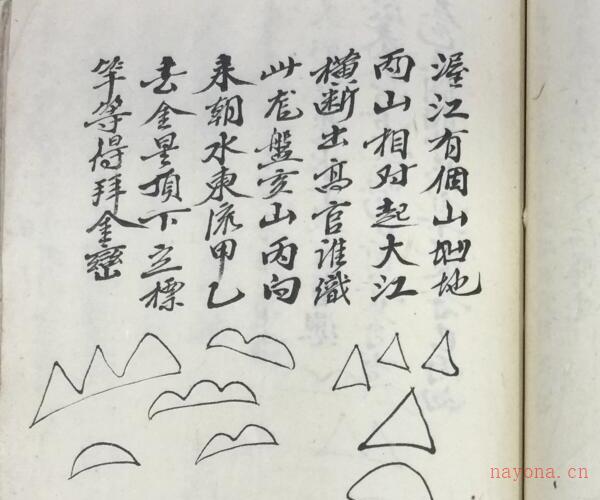 渥江有個山地
两山相对起大江
橫断出高官誰識
此龙盤亥山丙向
来朝水東流甲乙
去金星頂下立標
竿等得拜金巒
nayona.cn